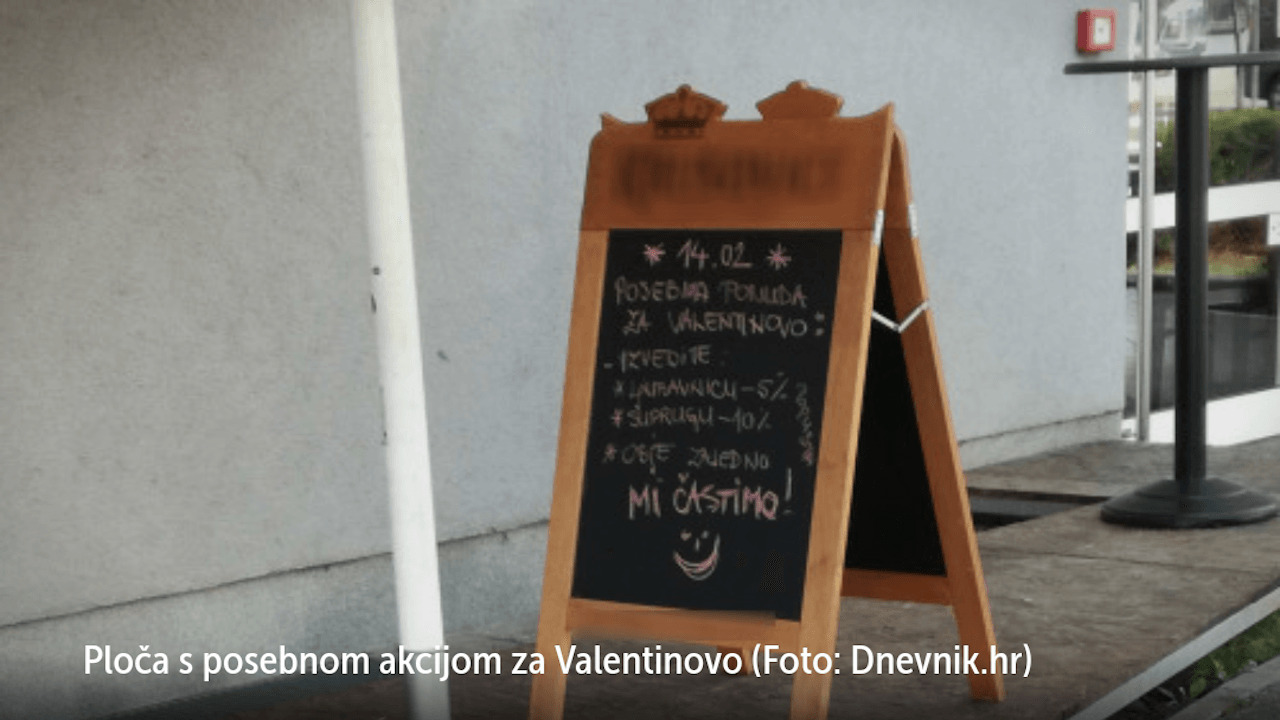 * 14.02 *
POSEBNA PONUDA
ZA VALENTINOVO:
- IZVEDITE:
* LJUBAVNICU - 5%
* SUPRUGU - 10%
* OBJE ZAJEDNO
MI ČASTIMO!
Ploča s posebnom akcijom za Valentinovo (Foto: Dnevnik.hr)